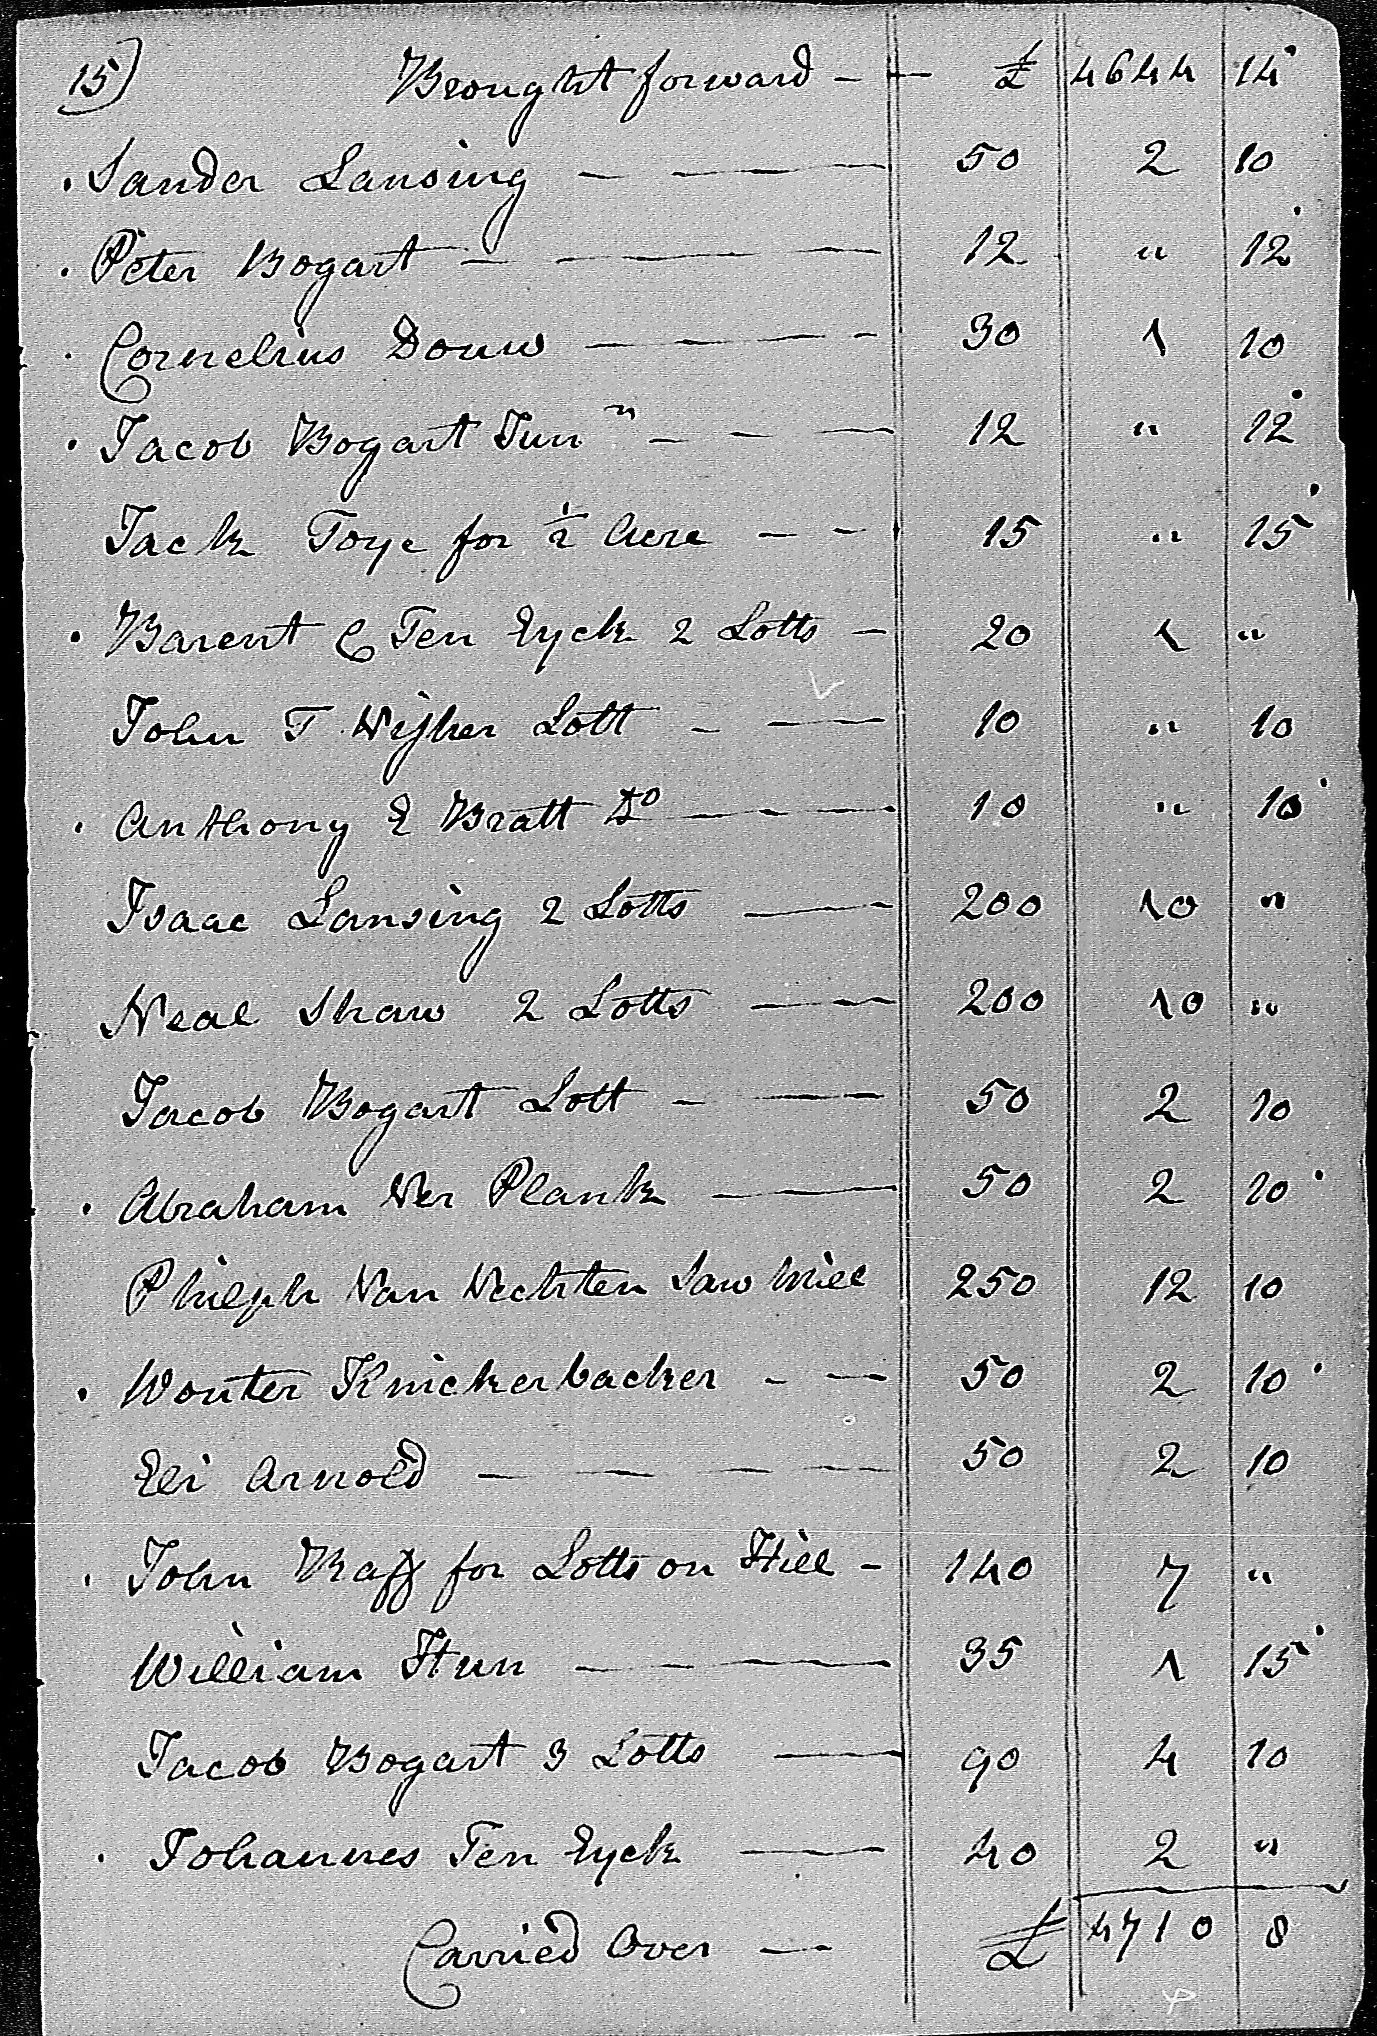 15) Brought forward - £ 4644 14
Sander Lansing 50 2 10
Peter Bogart 12 " 12
Cornelius Douw 30 1 10
Jacob Bogart Junr 12 " 12
Jack Toye for ½ Acre 15 " 15
Barent C Ten Eyck 2 Lotts 20 1 "
John T Visher Lott 10 " 10
Anthony E Bratt Do 10 " 10
Isaac Lansing 2 Lotts 200 10 "
Neal Shaw 2 Lotts 200 10 "
Jacob Bogart Lott 50 2 10
Abraham Ver Plank 50 2 10
Philiph Van Vechten Saw Mill 250 12 10
Wouter Knickerbacker 50 2 10
Eli Arnold 50 2 10
John for Lotts on Hill 140 7 "
William Hun 35 1 15
Jacob Bogart 3 Lotts 90 4 10
Johannes Ten Eyck 40 2 "
Carried Over £ 4710 8